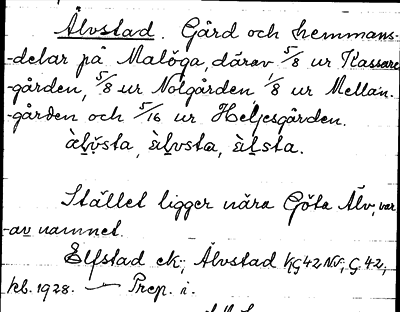 Älvstad. Gård och hemmans-
-delar på Malöga, därav 5/8 ur Kassare
-gården, 5/8 ur Nolgården 1/8 ur Mellan-
-gården och 5/16 ur Heljesgården.
Stället ligger nära Göta Älv, var
-av namnet.
Elfstad ek; Älvstad
kb. 1928. — Prep. i.